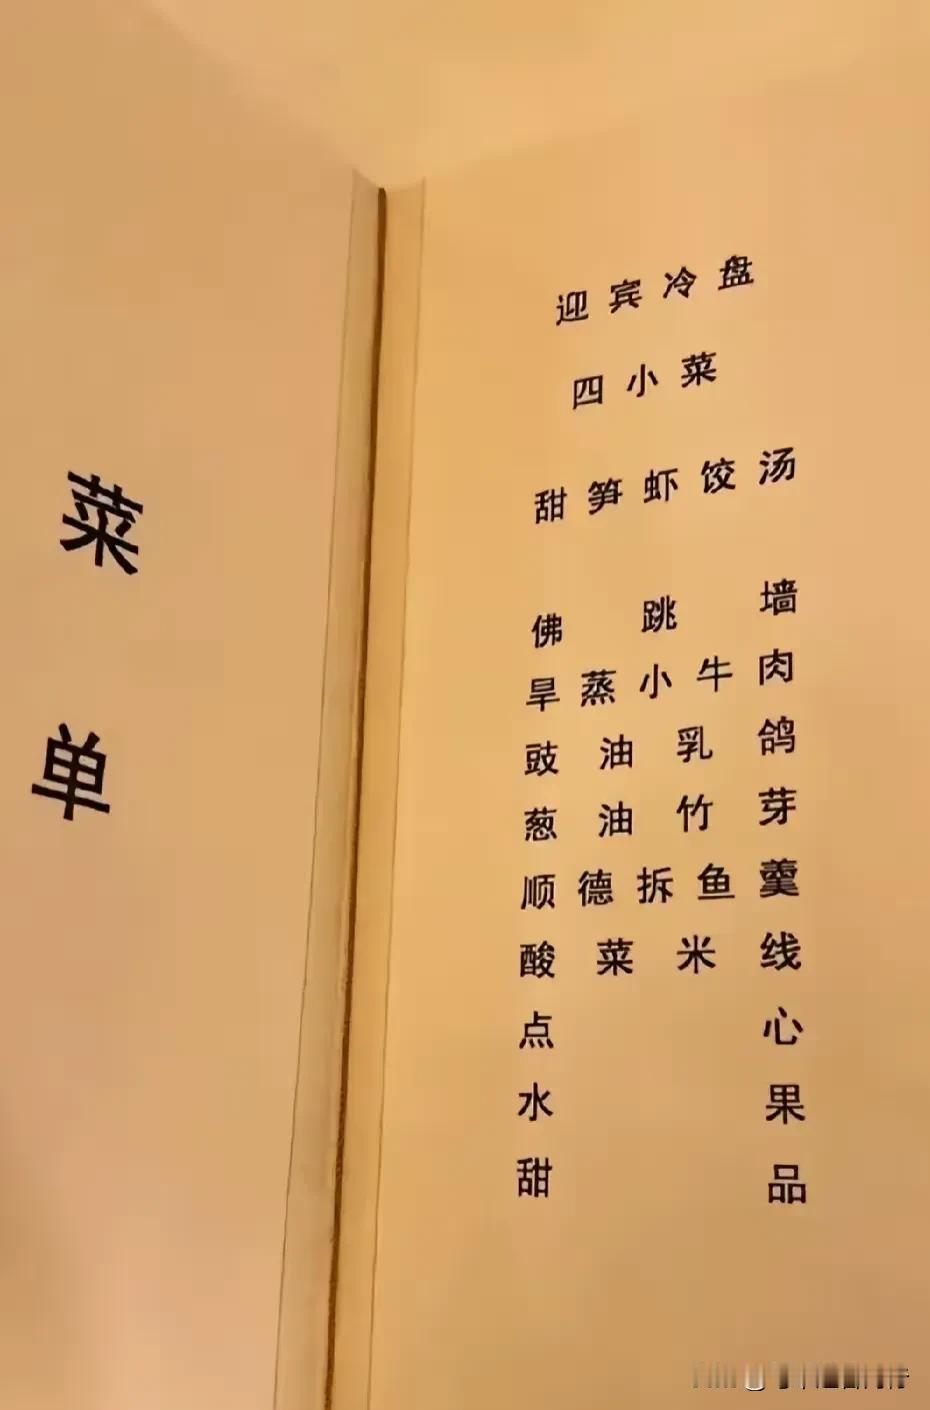 菜单
迎宾冷盘
四小菜
甜笋虾饺汤
佛跳墙
旱蒸小牛肉
豉油乳鸽
葱油竹芽
顺德拆鱼羹
酸菜米线
点心
水果
甜品